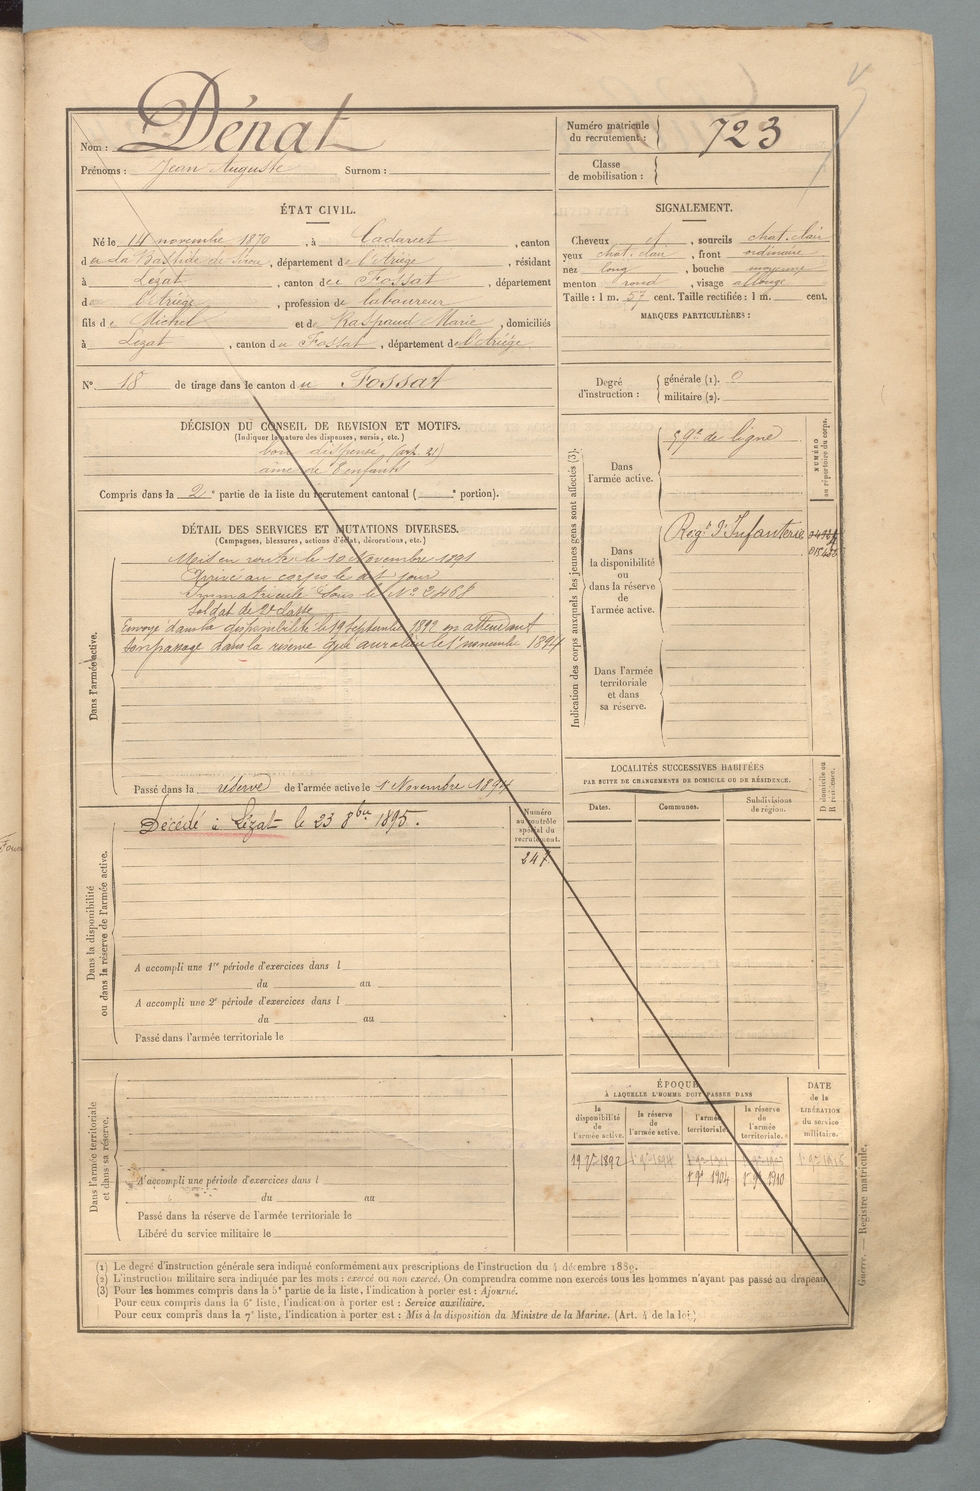 Nom : Dénat
Prénoms : Jean Auguste Surnom :
Numéro matricule du recrutement : 723
Classe de mobilisation :
ÉTAT CIVIL.
Né le 14 novembre 1870, à Cadarcet, canton
du La Bastide de Sérou, département de l'Ariège, résidant
à Lézat, canton du Fossat, département
de l'Ariège, profession de laboureur
fils de Michel et de Raspaud Marie, domiciliés
à Lezat, canton du Fossat, département de l'Ariége
N° 18 de tirage dans le canton du Fossat
SIGNALEMENT.
Cheveux et, sourcils chat. clair
yeux chat. clair, front ordinaire
nez long, bouche moyenne
menton rond, visage allongé
Taille : 1 m. 57 cent. Taille rectifiée : 1 m. cent.
MARQUES PARTICULIÈRES :
Degré d'instruction : générale (1). 0
militaire (2).
DÉCISION DU CONSEIL DE REVISION ET MOTIFS.
(Indiquer la nature des dispenses, sursis, etc.)
bon dispensé (art. 21)
ainé de 8 enfants
Compris dans la 2e partie de la liste du recrutement cantonal ( e portion).
DÉTAIL DES SERVICES ET MUTATIONS DIVERSES.
(Campagnes, blessures, actions d'éclat, décorations, etc.)
Dans l'armée active.
Mis en route le 10 Novembre 1891
Arrivé au corps le dit jour
Immatriculé sous le N° 2468
Soldat de 2e classe
Envoyé dans la disponibilité le 19 Septembre 1892 en attendant
son passage dans la réserve qui aura lieu le 1er novembre 1894
Passé dans la réserve de l'armée active le 1er Novembre 1894
Indication des corps auxquels les jeunes gens sont affectés (3).
NUMÉRO au répertoire du corps.
Dans l'armée active.
59e de ligne
Dans la disponibilité ou dans la réserve de l'armée active.
Régt d'Infanterie
Dans l'armée territoriale et dans sa réserve.
LOCALITÉS SUCCESSIVES HABITÉES
PAR SUITE DE CHANGEMENTS DE DOMICILE OU DE RÉSIDENCE.
Dates. Communes. Subdivisions de région. D domicile ou R résidence.
Dans la disponibilité ou dans la réserve de l'armée active.
Décédé à Lézat le 23 8bre 1895.
Numéro au contrôle spécial du recrutement.
247
A accompli une 1re période d'exercices dans l
du au
A accompli une 2e période d'exercices dans l
du au
Passé dans l'armée territoriale le
Dans l'armée territoriale et dans sa réserve.
A accompli une période d'exercices dans l
du au
Passé dans la réserve de l'armée territoriale le
Libéré du service militaire le
ÉPOQUE
À LAQUELLE L'HOMME DOIT PASSER DANS
la disponibilité de l'armée active. la réserve de l'armée active. l'armée territoriale. la réserve de l'armée territoriale. DATE de la LIBÉRATION du service militaire.
19 7bre 1892 1er 9bre 1894
1er 9bre 1904 1er 9bre 1910
(1) Le degré d'instruction générale sera indiqué conformément aux prescriptions de l'instruction du 4 décembre 1889.
(2) L'instruction militaire sera indiquée par les mots : exercé ou non exercé. On comprendra comme non exercés tous les hommes n'ayant pas passé au drapeau.
(3) Pour les hommes compris dans la 5e partie de la liste, l'indication à porter est : Ajourné.
Pour ceux compris dans la 6e liste, l'indication à porter est : Service auxiliaire.
Pour ceux compris dans la 7e liste, l'indication à porter est : Mis à la disposition du Ministre de la Marine. (Art. 4 de la loi.)
Guerre. — Registre matricule.